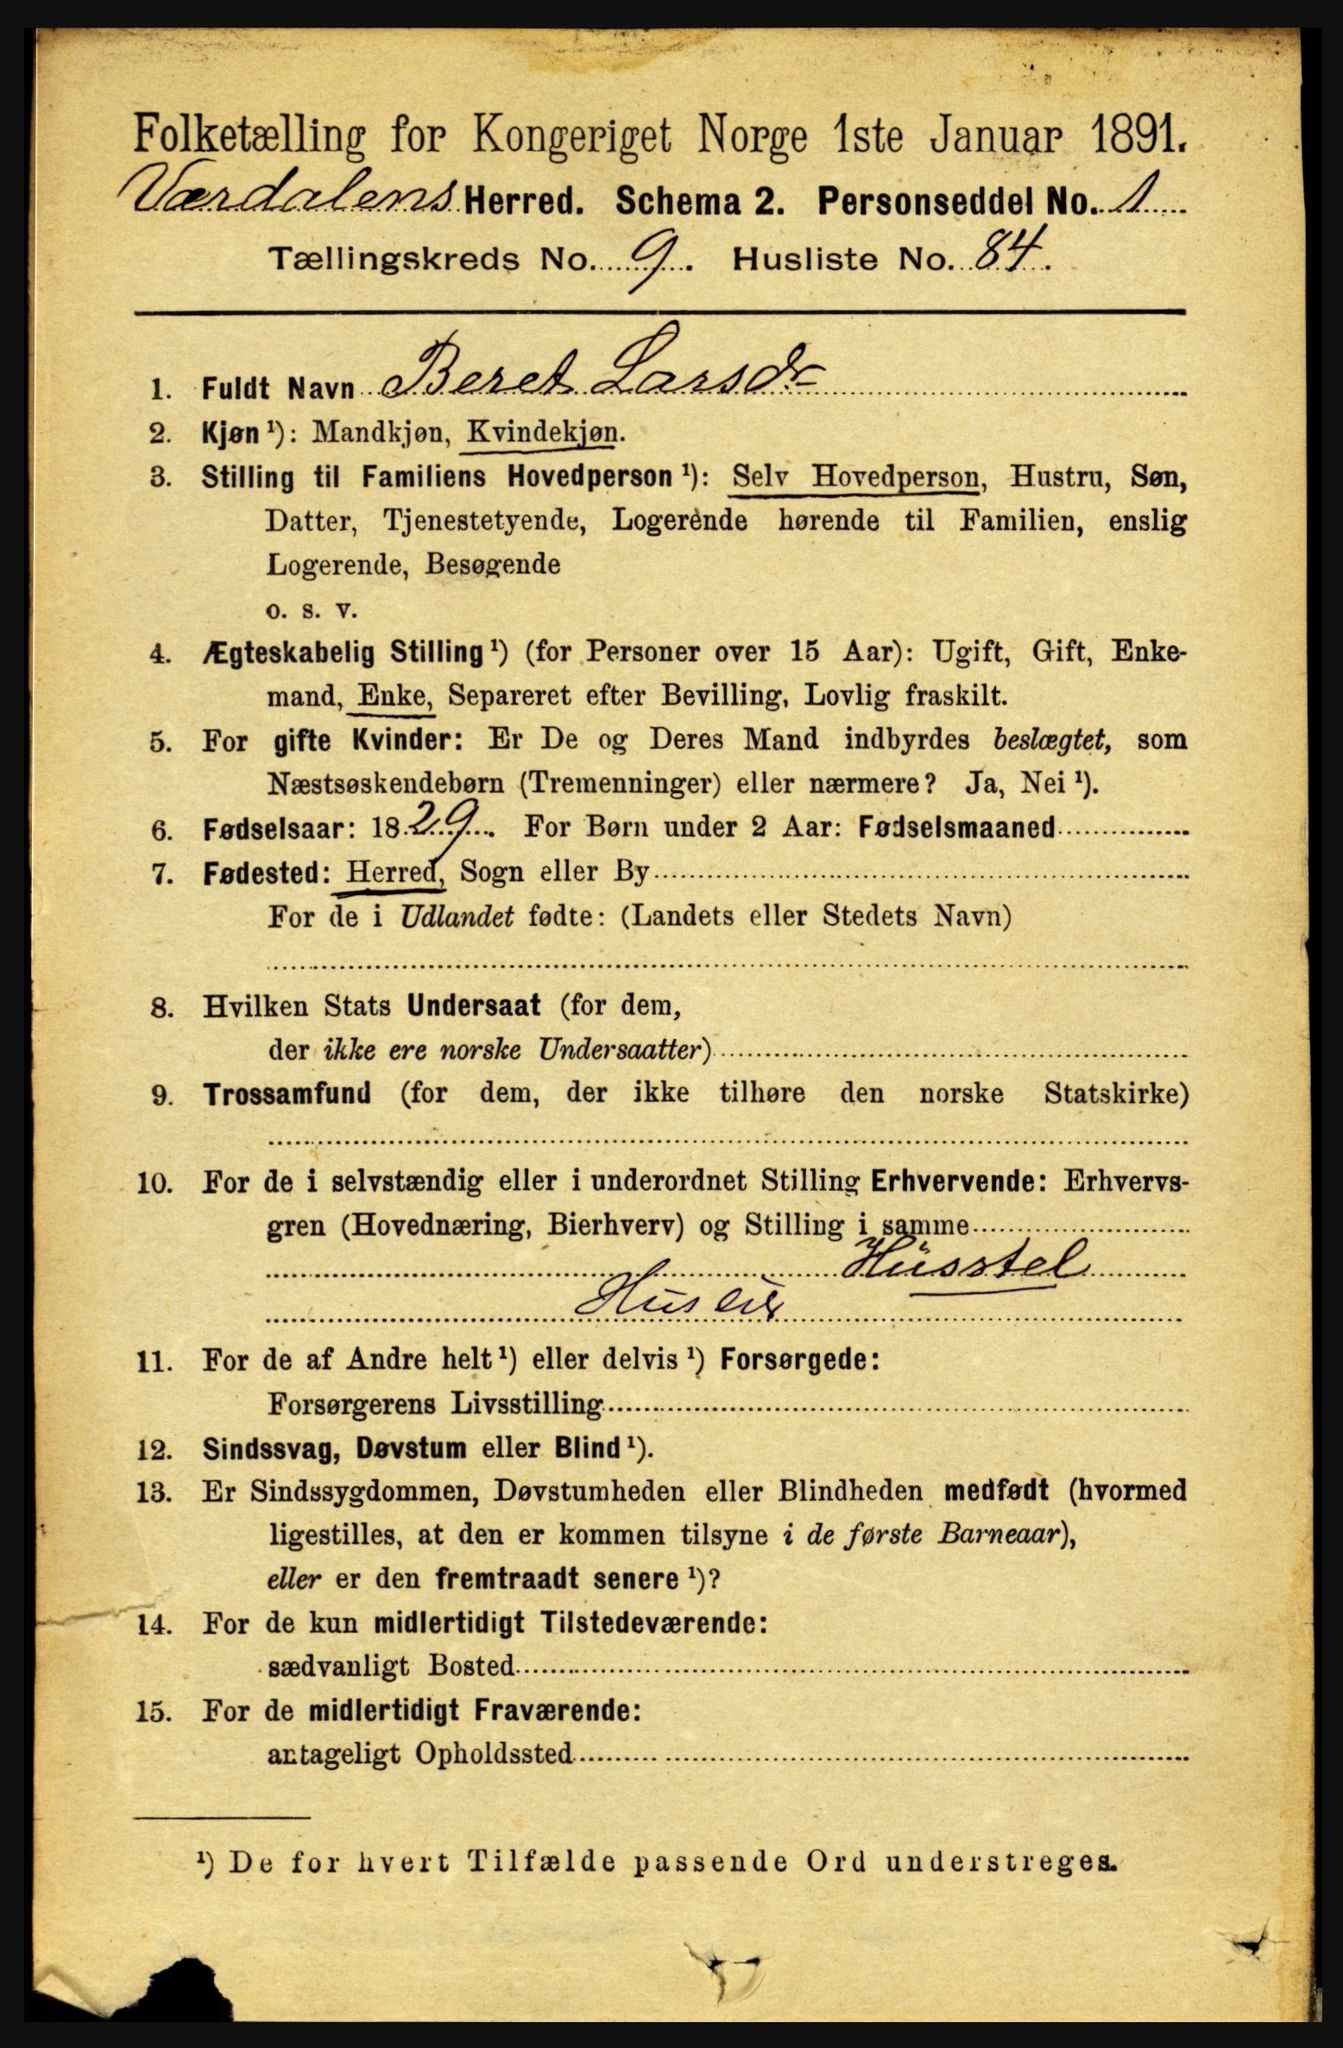 Folketælling for Kongeriget Norge 1ste Januar 1891.
Værdalens Herred. Schema 2. Personseddel No. 1
Tællingskreds No. 9. Husliste No. 84.
1. Fuldt Navn Beret Larsdr
2. Kjøn ¹): Mandkjøn, Kvindekjøn.
3. Stilling til Familiens Hovedperson ¹): Selv Hovedperson, Hustru, Søn,
Datter, Tjenestetyende, Logerende hørende til Familien, enslig
Logerende, Besøgende
o. s. v.
4. Ægteskabelig Stilling ¹) (for Personer over 15 Aar): Ugift, Gift, Enke-
mand, Enke, Separeret efter Bevilling, Lovlig fraskilt.
5. For gifte Kvinder: Er De og Deres Mand indbyrdes beslægtet, som
Næstsøskendebørn (Tremenninger) eller nærmere? Ja, Nei ¹).
6. Fødselsaar: 1829. For Børn under 2 Aar: Fødselsmaaned
7. Fødested: Herred, Sogn eller By
For de i Udlandet fødte: (Landets eller Stedets Navn)
8. Hvilken Stats Undersaat (for dem,
der ikke ere norske Undersaatter)
9. Trossamfund (for dem, der ikke tilhøre den norske Statskirke)
10. For de i selvstændig eller i underordnet Stilling Erhvervende: Erhvervs-
gren (Hovednæring, Bierhverv) og Stilling i samme
Husstel
Huseier
11. For de af Andre helt ¹) eller delvis ¹) Forsørgede:
Forsørgerens Livsstilling
12. Sindssvag, Døvstum eller Blind ¹).
13. Er Sindssygdommen, Døvstumheden eller Blindheden medfødt (hvormed
ligestilles, at den er kommen tilsyne i de første Barneaar),
eller er den fremtraadt senere ¹)?
14. For de kun midlertidigt Tilstedeværende:
sædvanligt Bosted
15. For de midlertidigt Fraværende:
antageligt Opholdssted
¹) De for hvert Tilfælde passende Ord understreges.